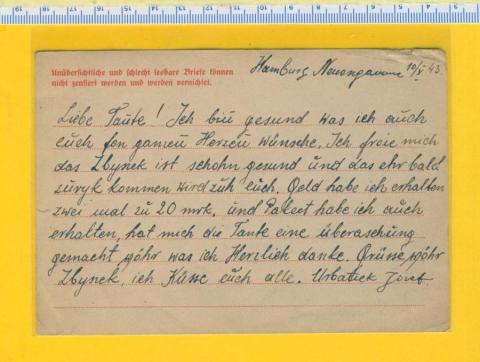 19 18 17 16 15 14 13 12 11 10 9 8 7 6 5 4 3
Unübersichtliche und schlecht lesbare Briefe können
nicht zensiert werden und werden vernichtet.
Hamburg Neuengamme 10/V 43.
Liebe Taute! Ich bin gesund was ich auch
euch fon ganzen Herzen wünsche. Ich freie mich
das Zbynek ist schohn gesund und das ehr bald
zuryk kommen wird zuh euch. Geld habe ich erhalten
zwei mal zu 20 mrk. und Pakect habe ich auch
erhalten, hat mich die Tante eine überaschung
gemacht wöhr was ich Herzlich danke. Grüsse wöhr
Zbynek, ich Küsse euch alle. Urbatiek Josef.